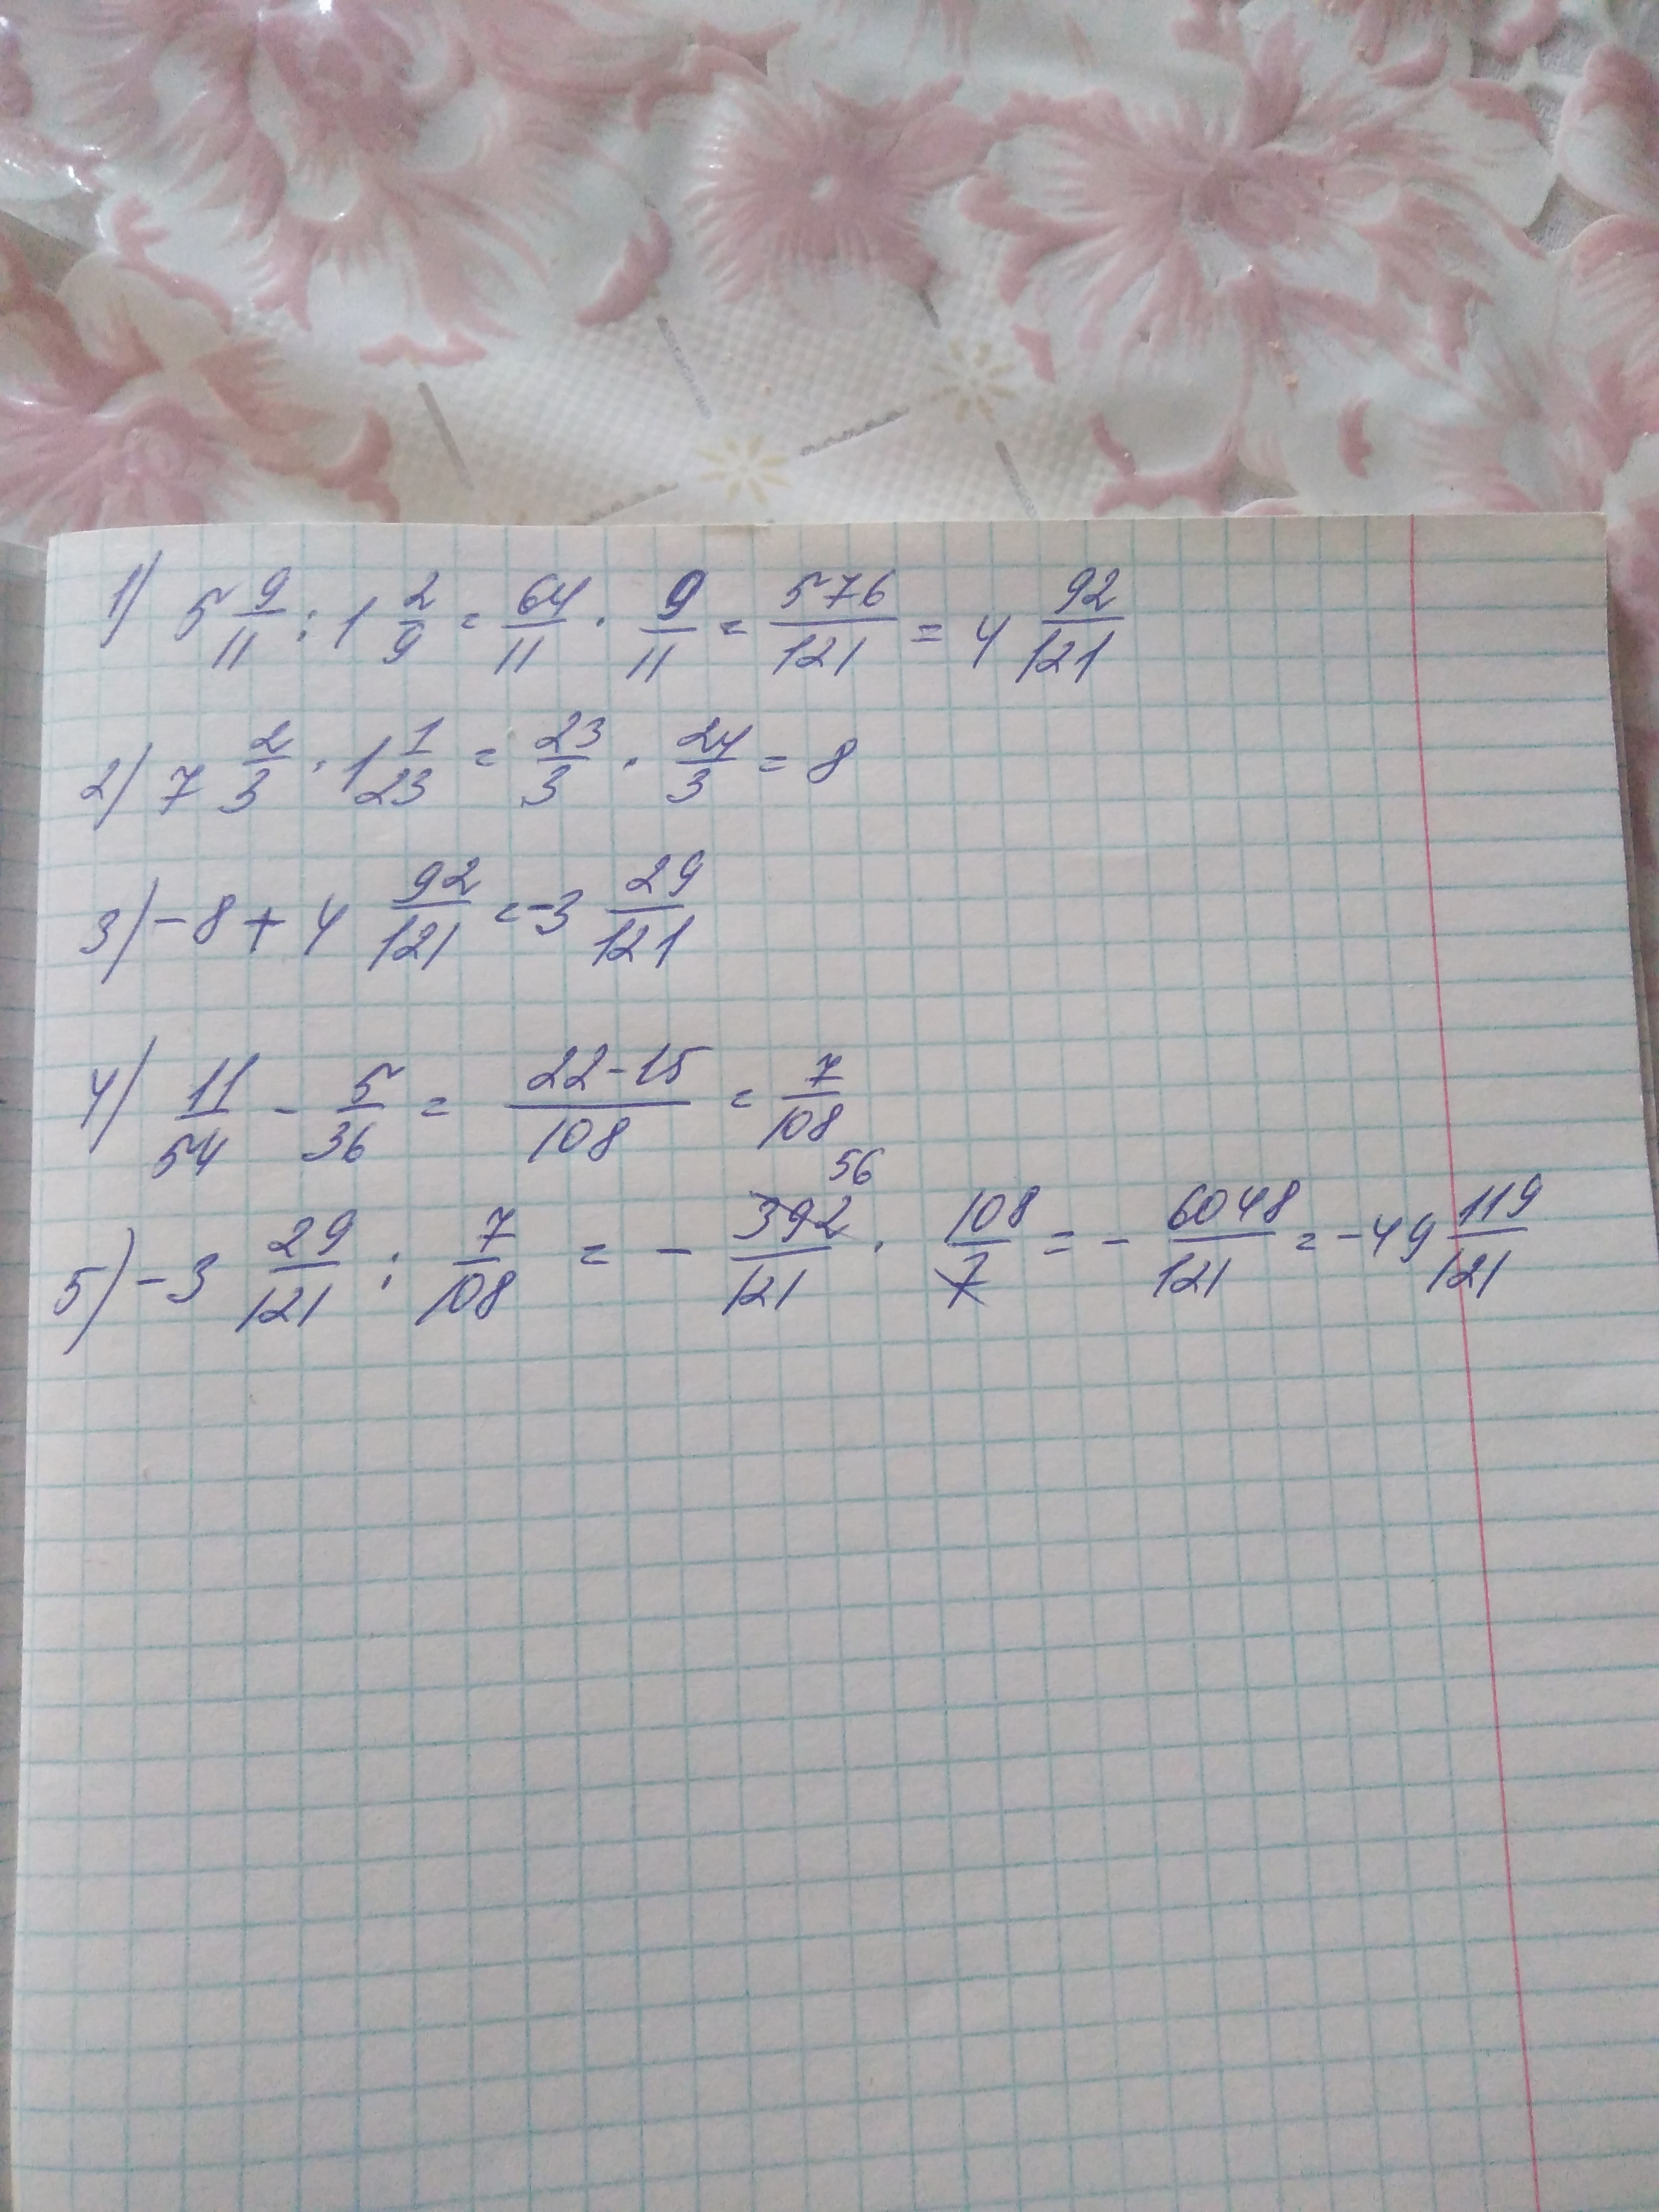 1) 5 9/11 : 1 2/9 = 64/11 · 9/11 = 576/121 = 4 92/121
2) 7 2/3 · 1 1/23 = 23/3 · 24/3 = 8
3) -8 + 4 92/121 = -3 29/121
4) 11/54 - 5/36 = 22-15/108 = 7/108
5) -3 29/121 : 7/108 = - 392/121 56 · 108/7 = - 6048/121 = -49 119/121